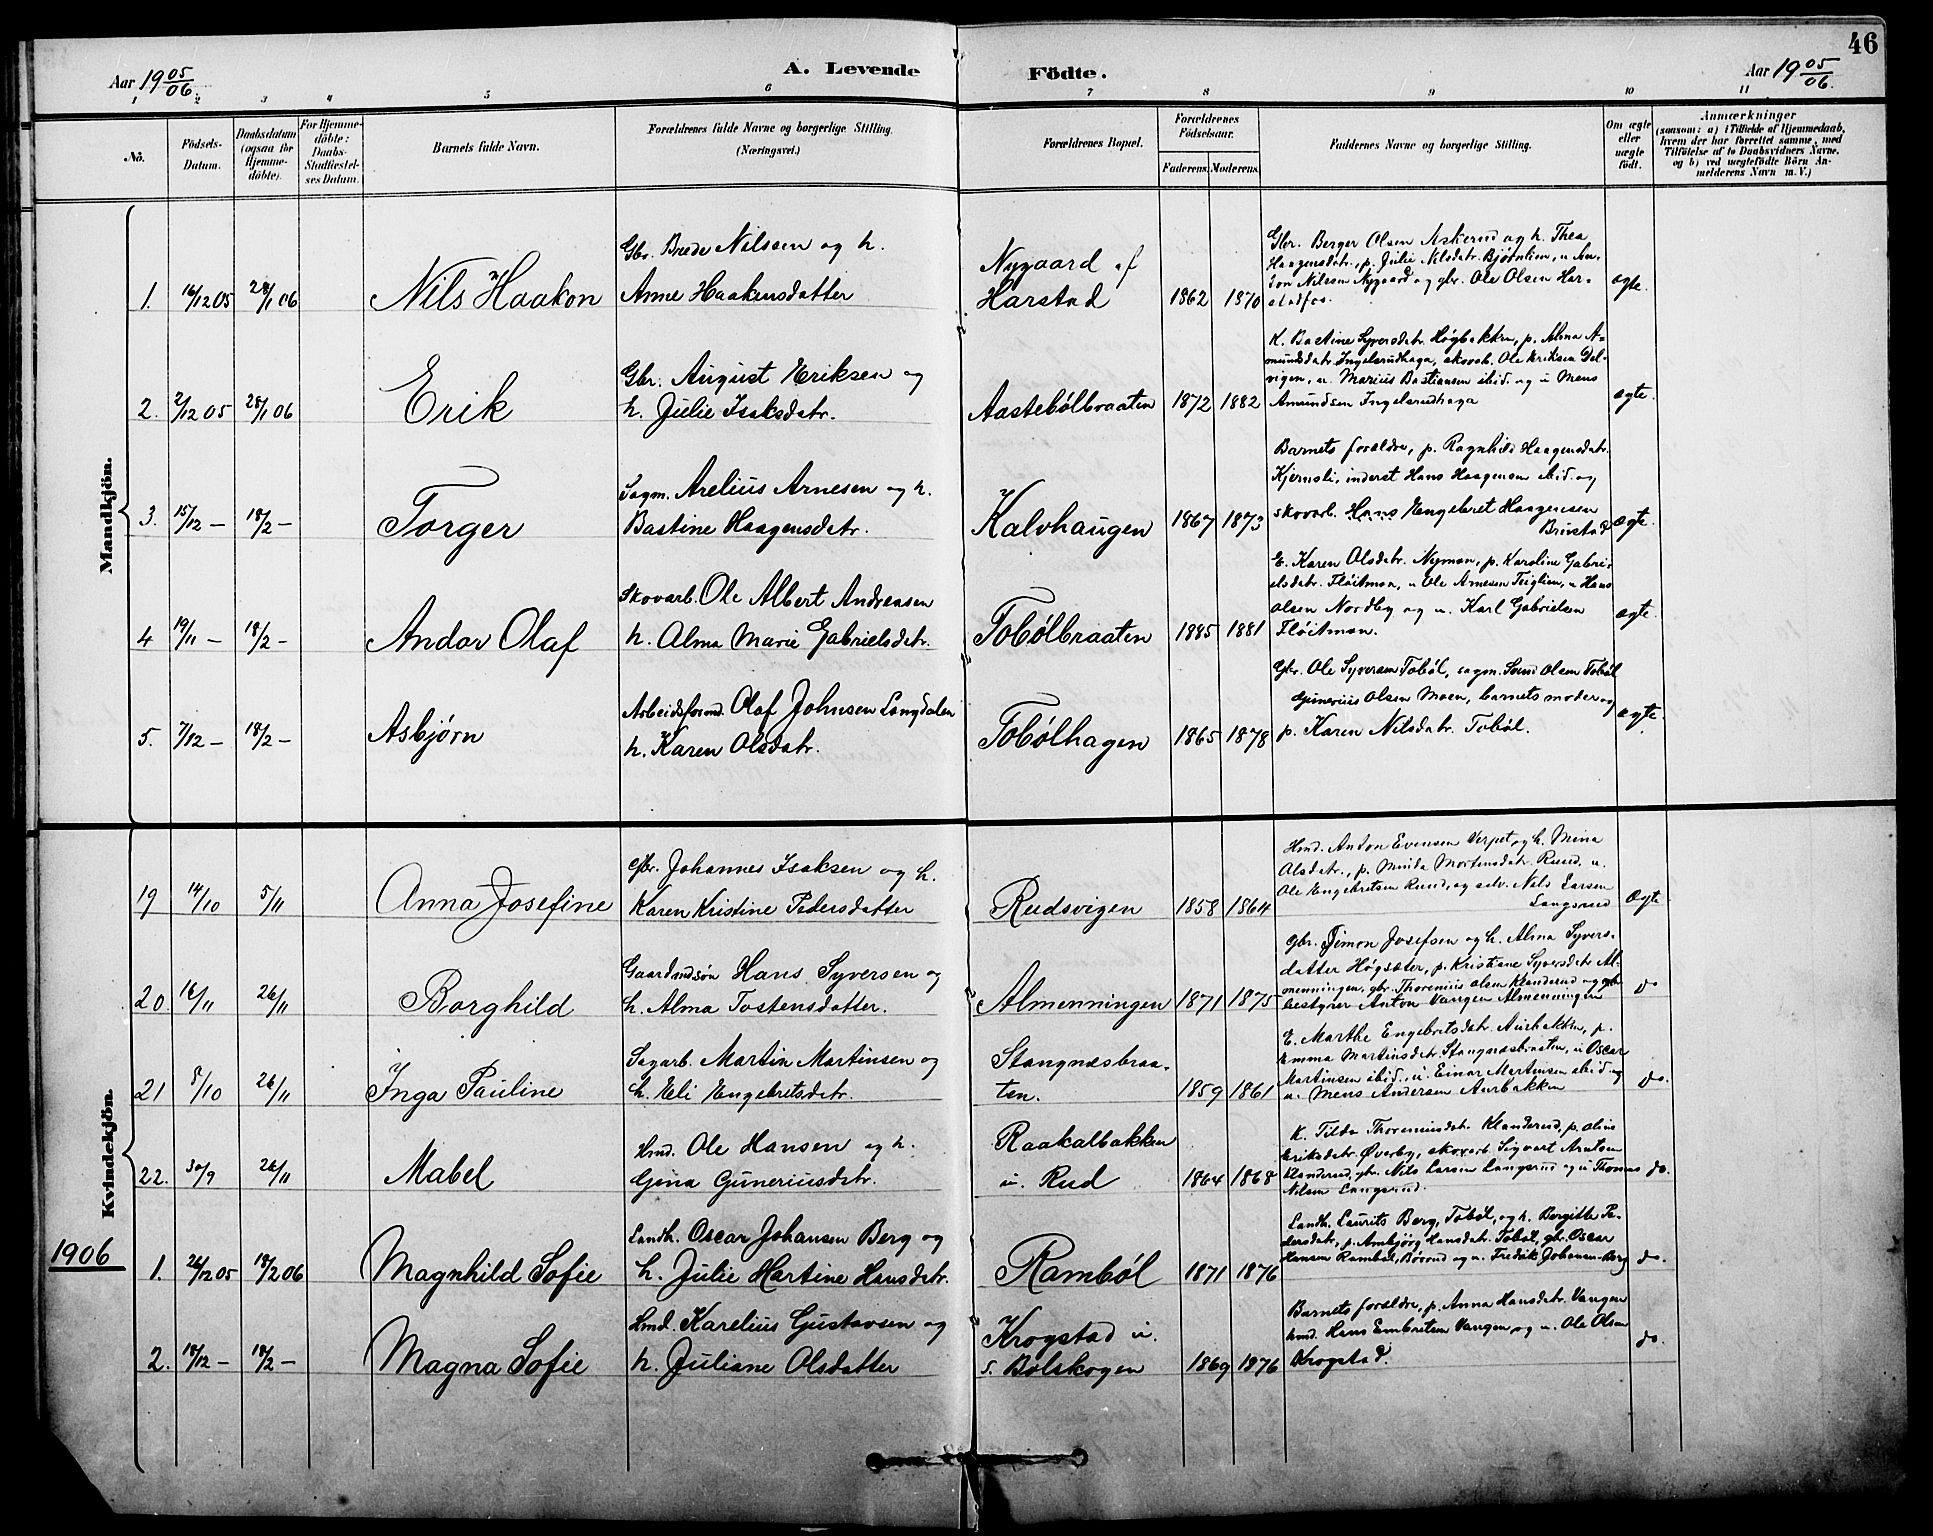 46
Aar 19 05/06.
A. Levende
Födte.
Aar 19 05/06.
1 2 3 4 5 6 7 8 9 10 11
Nô.
Födsels-
Datum.
Daabsdatum
(ogsaa for
Hjemme-
döbte).
For Hjemme-
döbte:
Daabs-
Stadfæstel-
ses Datum.
Barnets fulde Navn.
Forældrenes fulde Navne og borgerlige Stilling.
(Næringsvei.)
Forældrenes Bopæl.
Forældrenes
Födselsaar.
Faderens. Moderens.
Faddernes Navne og borgerlige Stilling.
Om ægte
eller
uægte
födt.
Anmærkninger
(saasom: a) i Tilfælde af Hjemmedaab,
hvem der har forrettet samme, med
Tilföielse af to Daabsvidners Navne,
og b) ved uægtefödte Börn An-
melderens Navn m. V.)
Mandkjön.
1. 16/12 05 28/1 06 Nils Haakon
Gbr. Brede Nilsen og h.
Anne Haakensdatter
Nygaard af
Harstad
1862 1870
Gbr. Berger Olsen Askerud og h. Thea
Haagensdatr., p. Julie Nilsdatr. Bjørnlien, u. An-
ton Nilsen Nygaard og gbr. Ole Olsen Har-
stadfos.
ægte.
2. 2/12 05 28/1 06 Erik
Gbr. August Eriksen og
h. Julie Isaksdatr.
Aastebölbraaten
1872 1882
K. Bastine Syversdatr. Høgbakken, p. Alma A-
mundsdatr. Ingelsrudhaga, skovarb. Ole Eriksen Døl-
vigen, u. Marius Bastiansen ibid. og u. Mens
Amundsen Ingelsrudhaga
ægte.
3. 15/12 — 18/2 — Torger
Sagm. Arelius Arnesen og h.
Bastine Haagensdatr.
Kalvhaugen
1867 1873
Barnets forældre, p. Ragnhild Haagensdatr.
Kjernsli, inderst Hans Haagensen ibid. og
skovarb. Hans Engebret Haagensen
Brustad
ægte.
4 19/11 — 18/2 — Andor Olaf
Skovarb. Ole Albert Andreasen
h. Alma Marie Gabrielsdatr.
Tobölbraaten
1885 1881
E. Karen Olsdatr. Nymoen, p. Karoline Gabri-
elsdatr. Flöitmoen, u. Ole Arnesen Teiglien, u. Hans
Olsen Nordby og u. Karl Gabrielsen
Flöitmoen.
ægte.
5. 7/12 — 18/2 — Asbjørn
Arbeidsformd. Olaf Johnsen Langdalen
h. Karen Olsdatr.
Tobölhagen
1865 1878
Gbr. Ole Syversen Toböl, sagm. Svend Olsen Toböl
Gunerius Olsen Moen, barnets moder og
p. Karen Nilsdatr. Toböl.
ægte.
Kvindekjön.
19 14/10 5/11 Anna Josefine
Gbr. Johannes Isaksen og h.
Karen Kristine Pedersdatter
Rudsvigen
1858 1864
Hmd. Anton Evensen Verpet og h. Mina
Olsdatr., p. Minda Mortensdatr. Ruud, u.
Ole Engebretsen Ruud, og selv. Nils Larsen
Langsrud
Ægte
20. 16/11 26/11 Borghild
Gaardmdsøn Hans Syversen og
h. Alma Tostensdatter.
Almenningen
1871 1875
gbr. Simon Josefsen og h. Alma Syvers-
datter Høgsæter, p. Kristiane Syversdatr. Al-
menningen, gbr. Thorenius Olsen Klanderud og gbr.
bestyrer Anton Vangen Almenningen
do
21 8/10 26/11 Inga Pauline
Sagarb. Martin Martinsen og
h. Eli Engebretsdatr.
Stangnæsbraa-
ten.
1859 1861
E. Marthe Engebretsdatr. Aurbakken, p.
Emma Martinsdatr. Stangnæsbraaten, u. Oscar
Martinsen ibid., u. Einar Martinsen ibid. og
u. Mens Andersen Aurbakken
do.
22. 30/9 26/11 Mabel
Hmd. Ole Hansen og h.
Gina Guneriusdatr.
Raakalbakken
u. Rud
1864 1868
K. Tilda Thoreniusdatr. Klanderud, p. Oline
Eriksdatr. Øverby, skovarb. Sigvart Arntsen
Klanderud, gbr. Nils Larsen Langsrud og u. Thomas
Nilsen Langsrud.
do.
1906
1. 26/12 05 18/2 06 Magnhild Sofie
Landh. Oscar Johansen Berg og
h. Julie Martine Hansdatr.
Ramböl
1871 1876
Landh. Laurits Berg, Toböl, og h. Bergitte Pe-
dersdatr., p. Ambjørg Hansdatr. Toböl, gbr. Oscar
Hansen Ramböl, Börvnd og u. Fredrik Johansen Berg
do.
2. 18/12 — 18/2 — Magna Sofie
Hmd. Karelius Gustavsen og
h. Juliane Olsdatter
Krogstad u.
s. Bølskogen
1869 1876
Barnets forældre, p. Anna Hansdatr. Vangen
hmd. Hans Embretsen Vangen og u. Ole Olsen
Krogstad.
do.